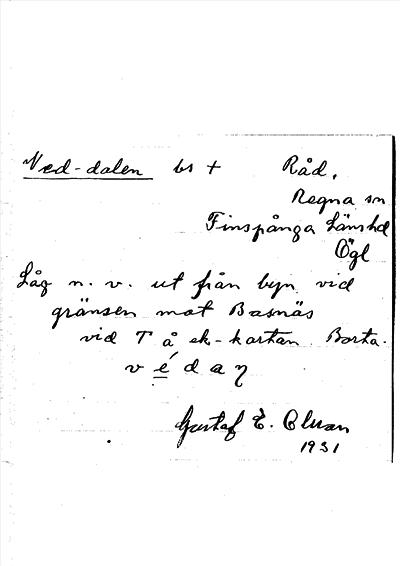 Ved-dalen bs + Råd.
Regna sn
Finspånga länshd
Ögl
Låg n. v. ut från byn vid
gränsen mot Basnäs
vid T å ek-kartan. Borta.
védaη
Gustaf E. Olsson
1931